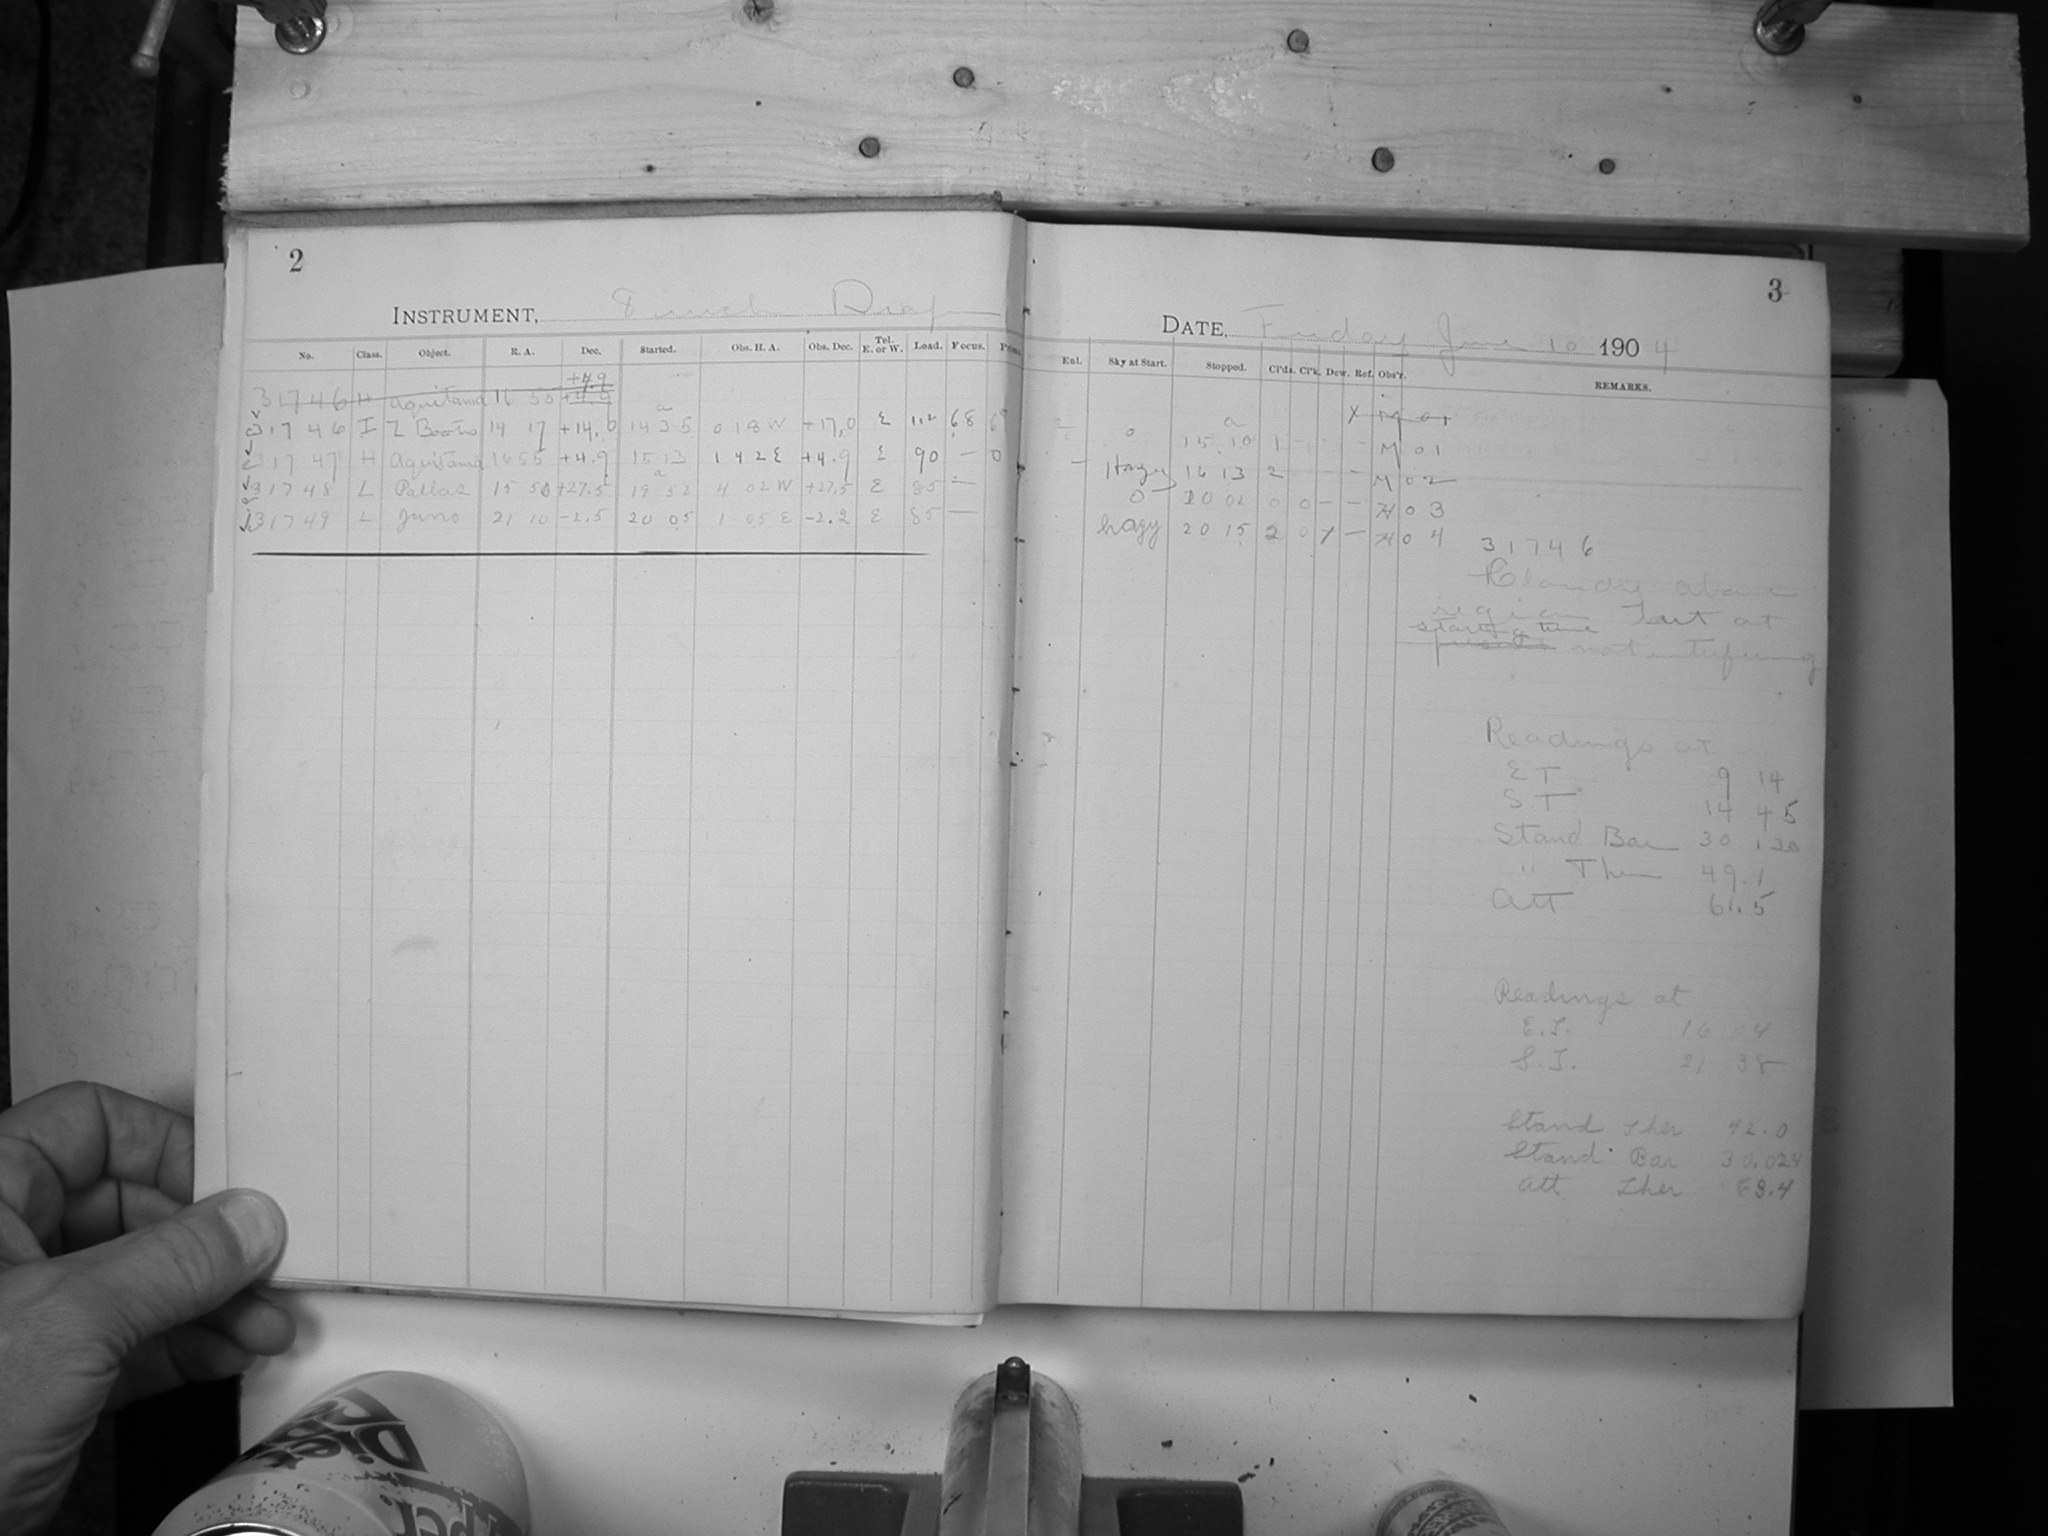 2
INSTRUMENT, 8 inch Draper
No. Class. Object. R. A. Dec. Started. Obs. H. A. Obs. Dec. Tel. E. or W. Load. Focus.
+4.9
31746 H Aquitania 16 55
31746 I Z Bootis 14 17 +14.0 14 35 0 18 W +17.0 E 112 68
31747 H Aquitania 16 55 +4.9 15 13 1 42 E +4.9 E 90 — 0
31748 L Pallas 15 50 +27.5 19 52 4 02 W +27.5 E 85 —
31749 L Juno 21 10 -2.5 20 05 1 05 E -2.2 E 85 —
3
DATE, Friday June 10 1904
Enl. Sky at Start. Stopped. Cl'ds. Cl'k. Dew. Ref. Obs'r. REMARKS.
X M 01
0 15 10 1 - - - M 01
Hazy 16 13 2 - - M 02
0 20 02 0 0 - - H 03
hazy 20 15 2 0 / - H 04
31746
Cloudy above
region but at
starting time
not interfering
Readings at
E T 9 14
S T 14 45
Stand Bar 30.130
" Ther 49.1
Att 61.5
Readings at
E.T. 16 04
S.T. 21 38
Stand Ther 42.0
Stand Bar 30.024
Att. Ther 63.4
Diet